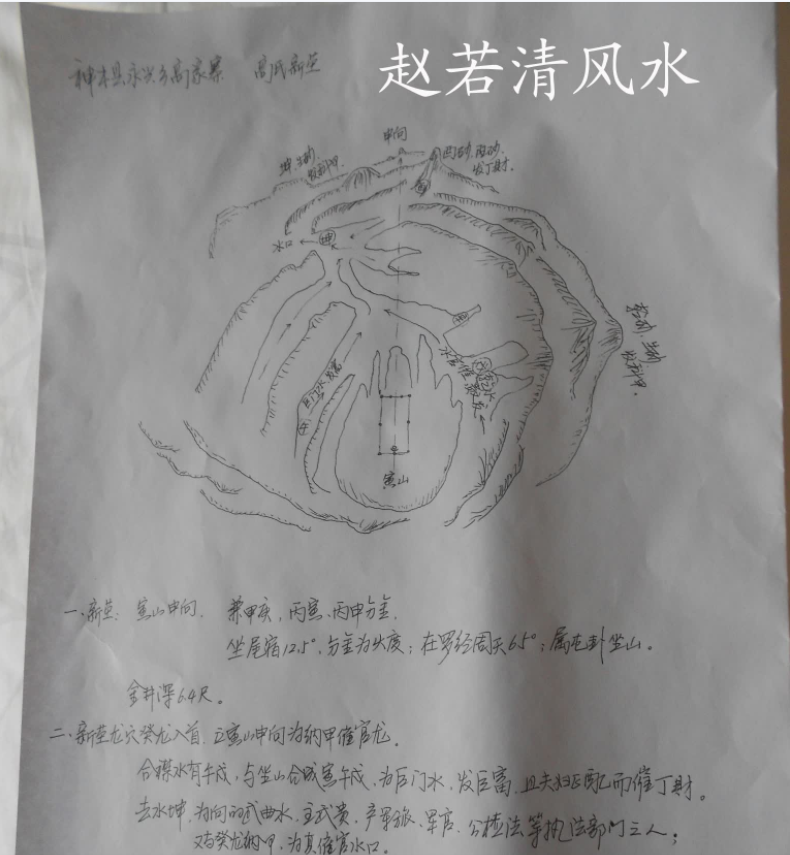 赵若清风水
神木县永兴乡高家寨 高氏新茔
申向
发科甲
丙砂
发丁财
水口
坤
发科甲
午
巨门水发富
寅山
一、新茔: 寅山申向, 兼甲庚, 丙寅、丙申分金,
坐尾宿12.5°, 分金为火度; 在罗经周天65°; 属屯卦坐山。
金井深6.4尺。
二、新茔龙穴癸龙入首, 立寅山申向为纳甲催官龙。
合禄水有午戌, 与坐山合成寅午戌, 为巨门水, 发巨富, 且夫妇正配而催丁财。
去水坤, 为向的武曲水, 主武贵, 产军旅、军官、公检法等执法部门之人;
又与癸龙纳甲, 为真催官水口。